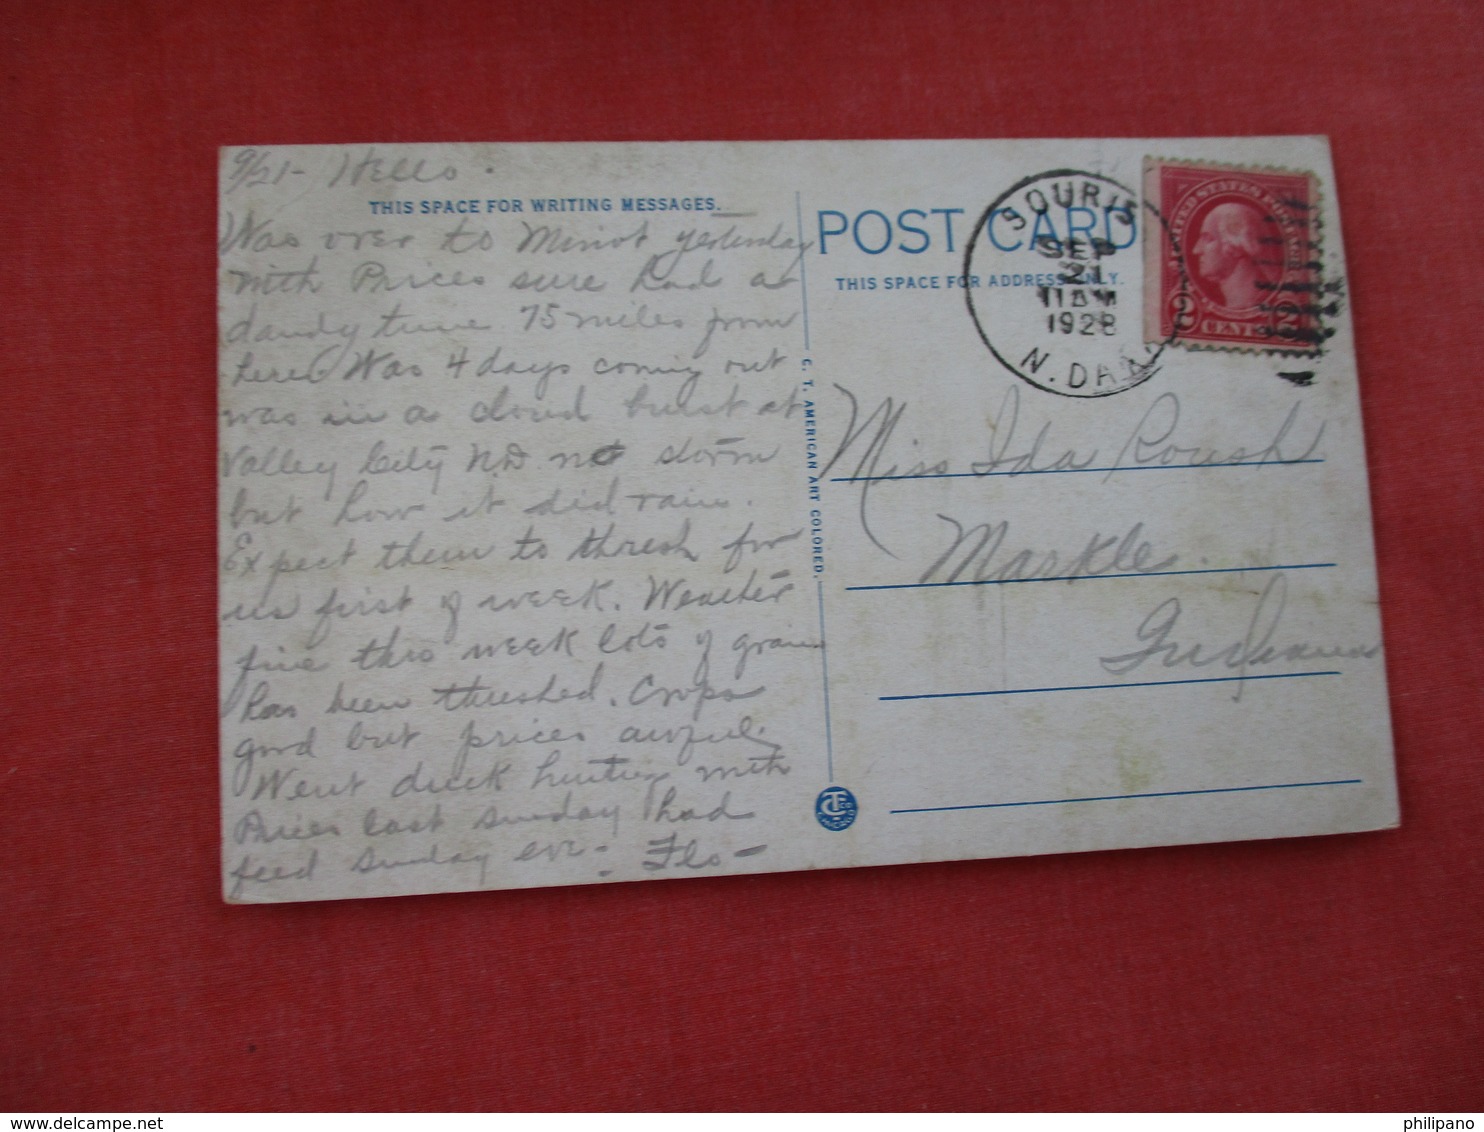 9/21- Hello.
THIS SPACE FOR WRITING MESSAGES.
Was over to Minot yesterday
with Prices sure had a
dandy time 75 miles from
here Was 4 days coming out
was in a cloud burst at
Valley City N.D. not storm
but how it did rain.
Expect them to thresh for
us first of week. Weather
fine this week lots of grain
has been threshed. Crops
good but prices awful.
Went duck hunting with
Prices last Sunday had
feed Sunday eve - Flo -
C. T. AMERICAN ART COLORED.
POST CARD
THIS SPACE FOR ADDRESS ONLY.
SOURIS
SEP
21
11 AM
1928
N. DAK.
UNITED STATES POSTAGE
2 CENTS 2
Miss Ida Roush
Markle.
Indiana
philipano
delcampe.net